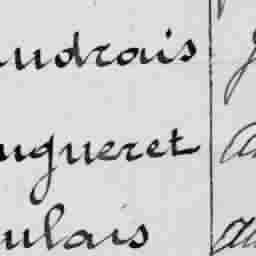 audrais
ugueret
ulais